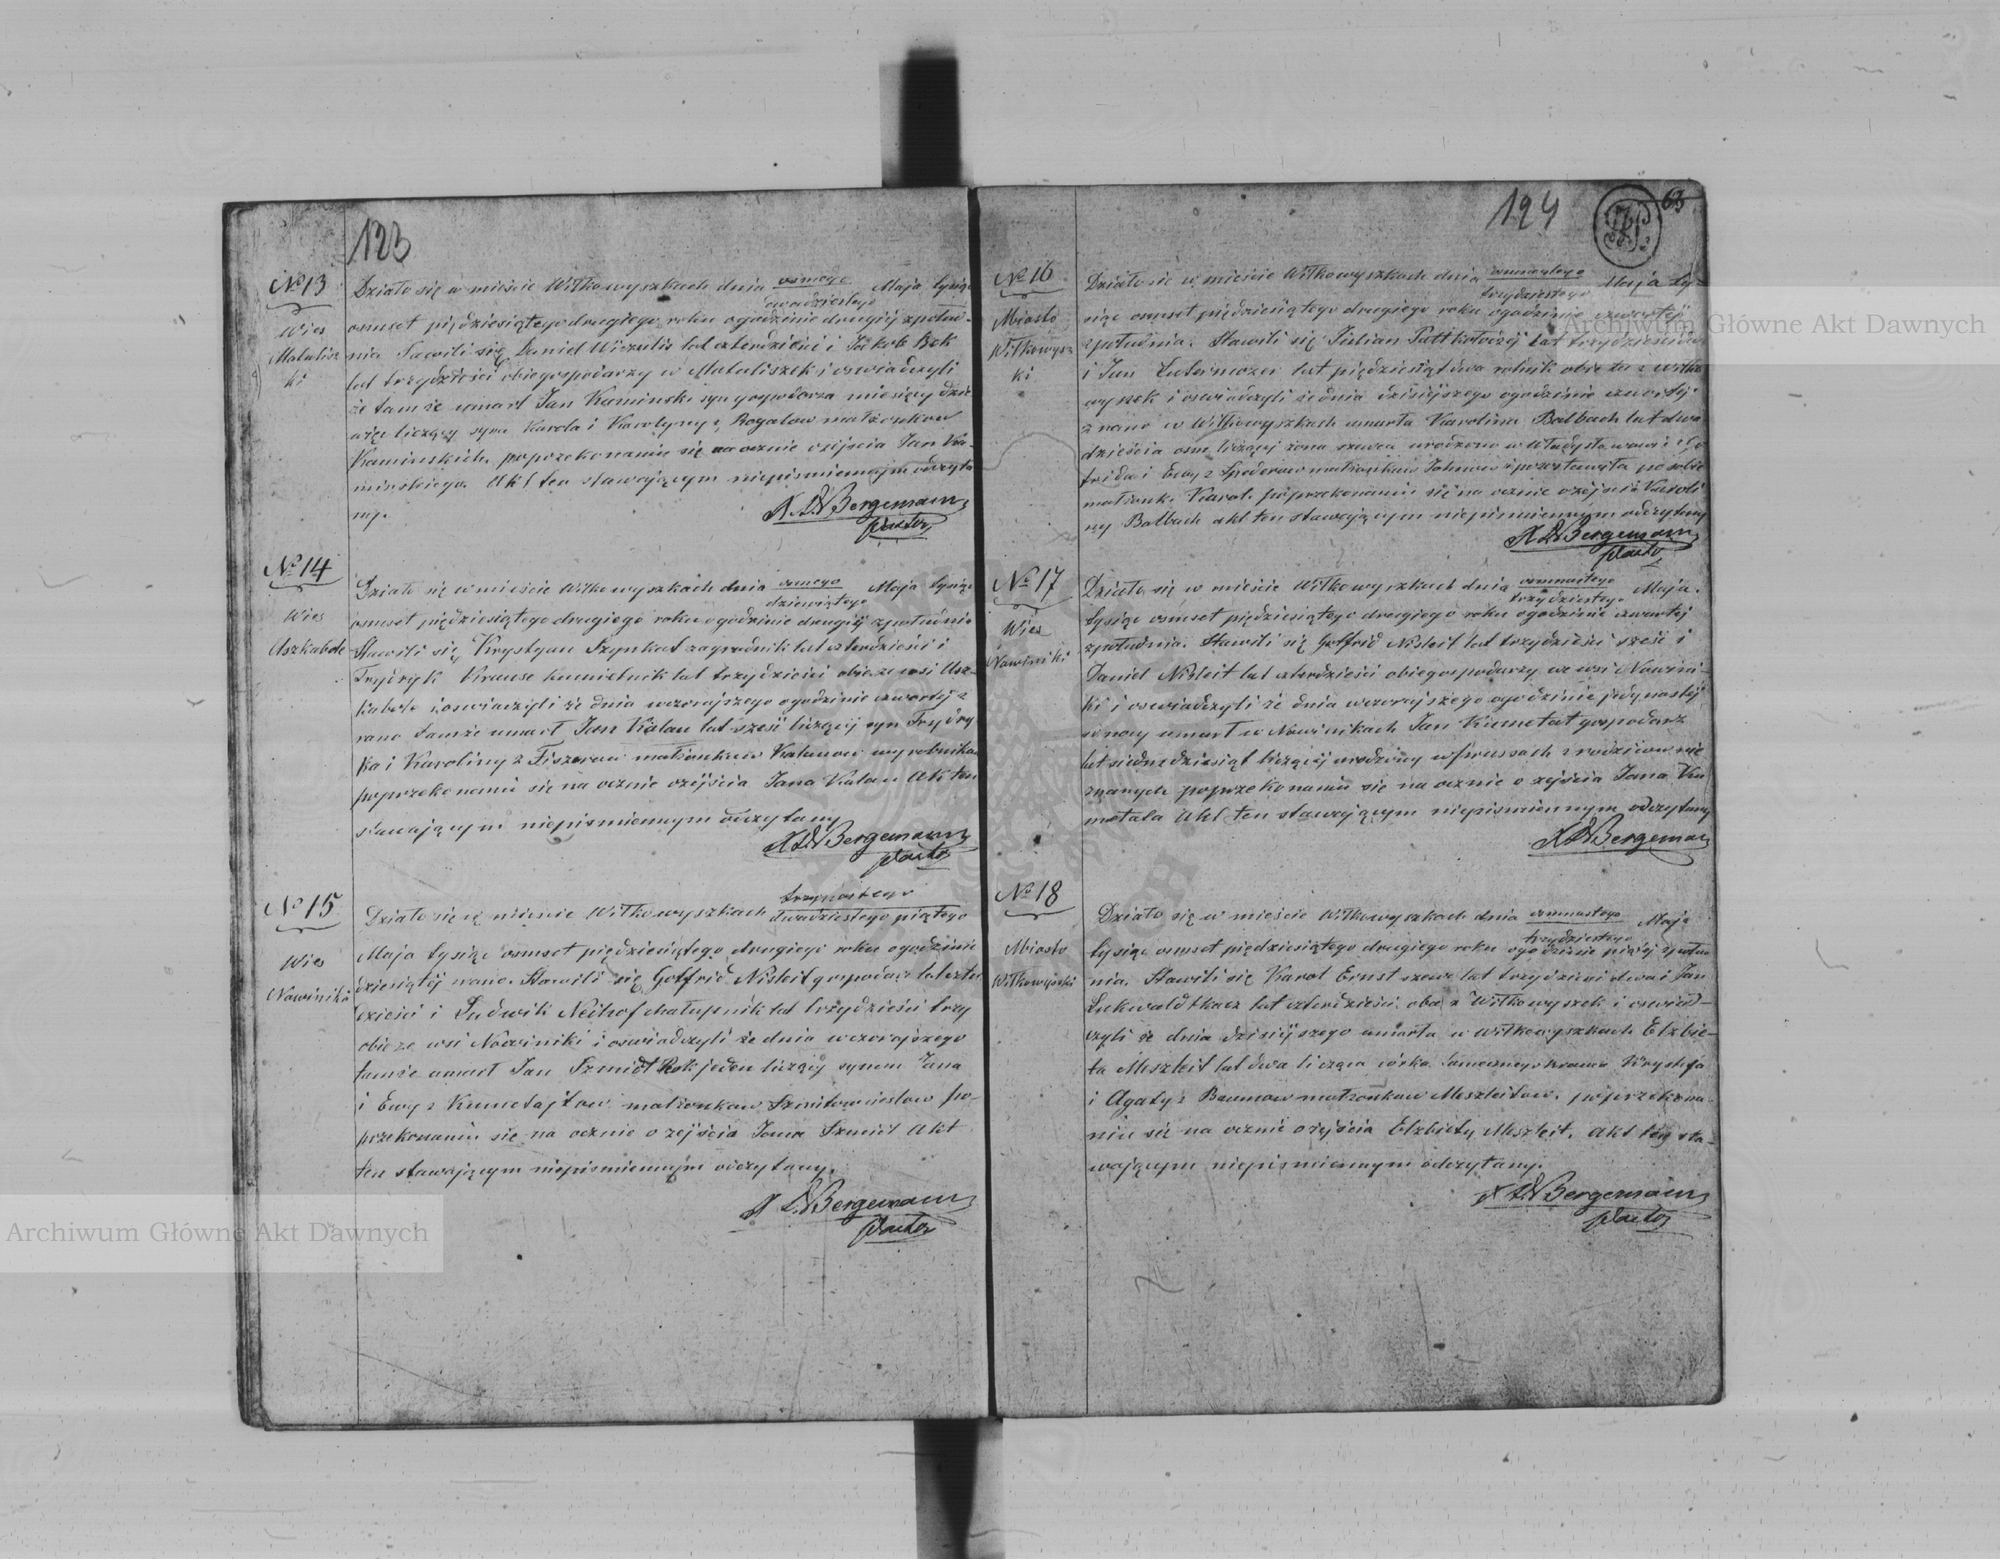 123
№ 13
Wies
Matulisz
ki
Działo się w mieście Wiłkowyszkach dnia osmego / dwudziestego Maja tysiąc
osmset pięćdziesiątego drugiego roku ogodzinie drugiej zpołud-
nia Stawili się Daniel Wiczulis lat czterdzieści i Jakob Bok
lat trzydzieści obiegospodarzy w Matuliszek i oswiadczyli
że tamże umarł Jan Kaminski syn gospodarza miesięcy dzie
więc liczący syna Karola i Karolyny z Rogalow małżonkow
Kaminskich, poprzekonaniu się naocznie ozejscia Jan Ka-
minskiego. Akt ten stawającym niepismiennym odczyta
ny.
Bergemann
Pastor
№ 14
Wies
Uszkabole
Działo się w mieście Wiłkowyszkach dnia osmego / dziewiątego Maja tysiąc
osmset pięćdziesiątego drugiego roku ogodzinie drugiej zpołudnia
Stawili się Krystyan Szynkat zagrodnik lat czterdzieści i
Frydryk Krause lat trzydzieści obie ze wsi Usz-
kabole i oswiadczyli że dnia wczorajszego ogodzinie czwartej z
rana tamże umarł Jan Kalau lat sześć liczący syn Frydry
ka i Karoliny z Fiszerow małżonkow Kalauow wyrobnika
poprzekonaniu się na ocznie ozejscia Jana Kalau Akt ten
stawającym niepismiennym odczytany
Bergemann
Pastor
№ 15
Wies
Nowiniki
Działo się w mieście Wiłkowyszkach trzynastego / dwudziestego piątego
Maja tysiąc osmset pięćdziesiątego drugiego roku ogodzinie
dziesiątej rano. Stawili się Gotfrid Nisleit gospodarz lat czter
dzieści i Ludwik Neihof chałupnik lat trzydzieści trzy
obie ze wsi Nowiniki i oswiadczyli że dnia wczorajszego
tamże umarł Jan Szmidt Rok jeden liczący synem Jana
i Ewy z Kumetajtow małżonkow po-
przekonaniu się na ocznie o zejscia Jana Szmidt Akt
ten stawającym niepismiennym odczytany.
Bergemann
Pastor
124
63
№ 16
Miasto
Wiłkowysz
ki
Działo się w mieście Wiłkowyszkach dnia osmnastego / trzydziestego Maja ty-
siąc osmset pięćdziesiątego drugiego roku ogodzinie czwartej
zpołudnia. Stawili się Julian lat trzydzieści
i Jan lat pięćdziesiąt dwa rolnik obie ta z Wiłko
wyszek i oswiadczyli że dnia dzisiejszego ogodzinie czwartej
z rana w Wiłkowyszkach umarła Karolina Balbach lat dwa
dzieścia osm licząca żona szewca urodzona w Władysławowie z Go
frida i Ewy z małżonkow pozostawiła po sobie
małżonk. Karol. poprzekonaniu się na ocznie ozejscia Karoli
ny Balbach akt ten stawającym niepismiennym odczytany
Bergemann
Pastor
№ 17
Wies
Nowiniki
Działo się w mieście Wiłkowyszkach dnia osmnastego / trzydziestego Maja.
tysiąc osmset pięćdziesiątego drugiego roku ogodzinie czwartej
zpołudnia. Stawili się Gotfrid Nisleit lat trzydzieści sześć i
Daniel Nisleit lat czterdzieści obiegospodarzy ze wsi Nowini-
ki i oswiadczyli że dnia wczorajszego ogodzinie jedynastej
w nocy umarł w Nowinikach Jan Kumetat gospodarz
lat siedmdziesiąt liczący urodzony w Prussach z rodzicow nie
znanych poprzekonaniu się na ocznie o zejscia Jana Ku
metata Akt ten stawającym niepismiennym odczytany
Bergeman
№ 18
Miasto
Wiłkowyszki
Działo się w mieście Wiłkowyszkach dnia osmnastego / trzydziestego Maja
tysiąc osmset pięćdziesiątego drugiego roku ogodzinie piątej zpołud
nia. Stawili się Karol Ernst szewc lat trzydzieści dwa i Jan
Lukwald tkacz lat czterdzieści oba z Wiłkowyszek i oswiad-
czyli że dnia dzisiejszego umarła w Wiłkowyszkach Elzbie-
ta Meszleit lat dwa licząca córka Krystofa
i Agaty z Baumow małżonkow Meszleitow, poprzekona
niu się na ocznie ozejscia Elzbiety Meszleit. Akt ten sta-
wającym niepismiennym odczytany.
Bergemann
Pastor
Archiwum Główne Akt Dawnych
Archiwum Główne Akt Dawnych